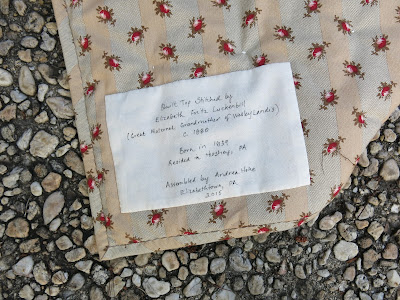 Quilt Top Stitched by
Elizabeth Lutz Luckenbill
(Great Maternal Grandmother of Wesley Landis)
c. 1880
Born in 1835
Resided in Hershey, PA
Assembled by Andrea
Elizabethtown, PA
2015